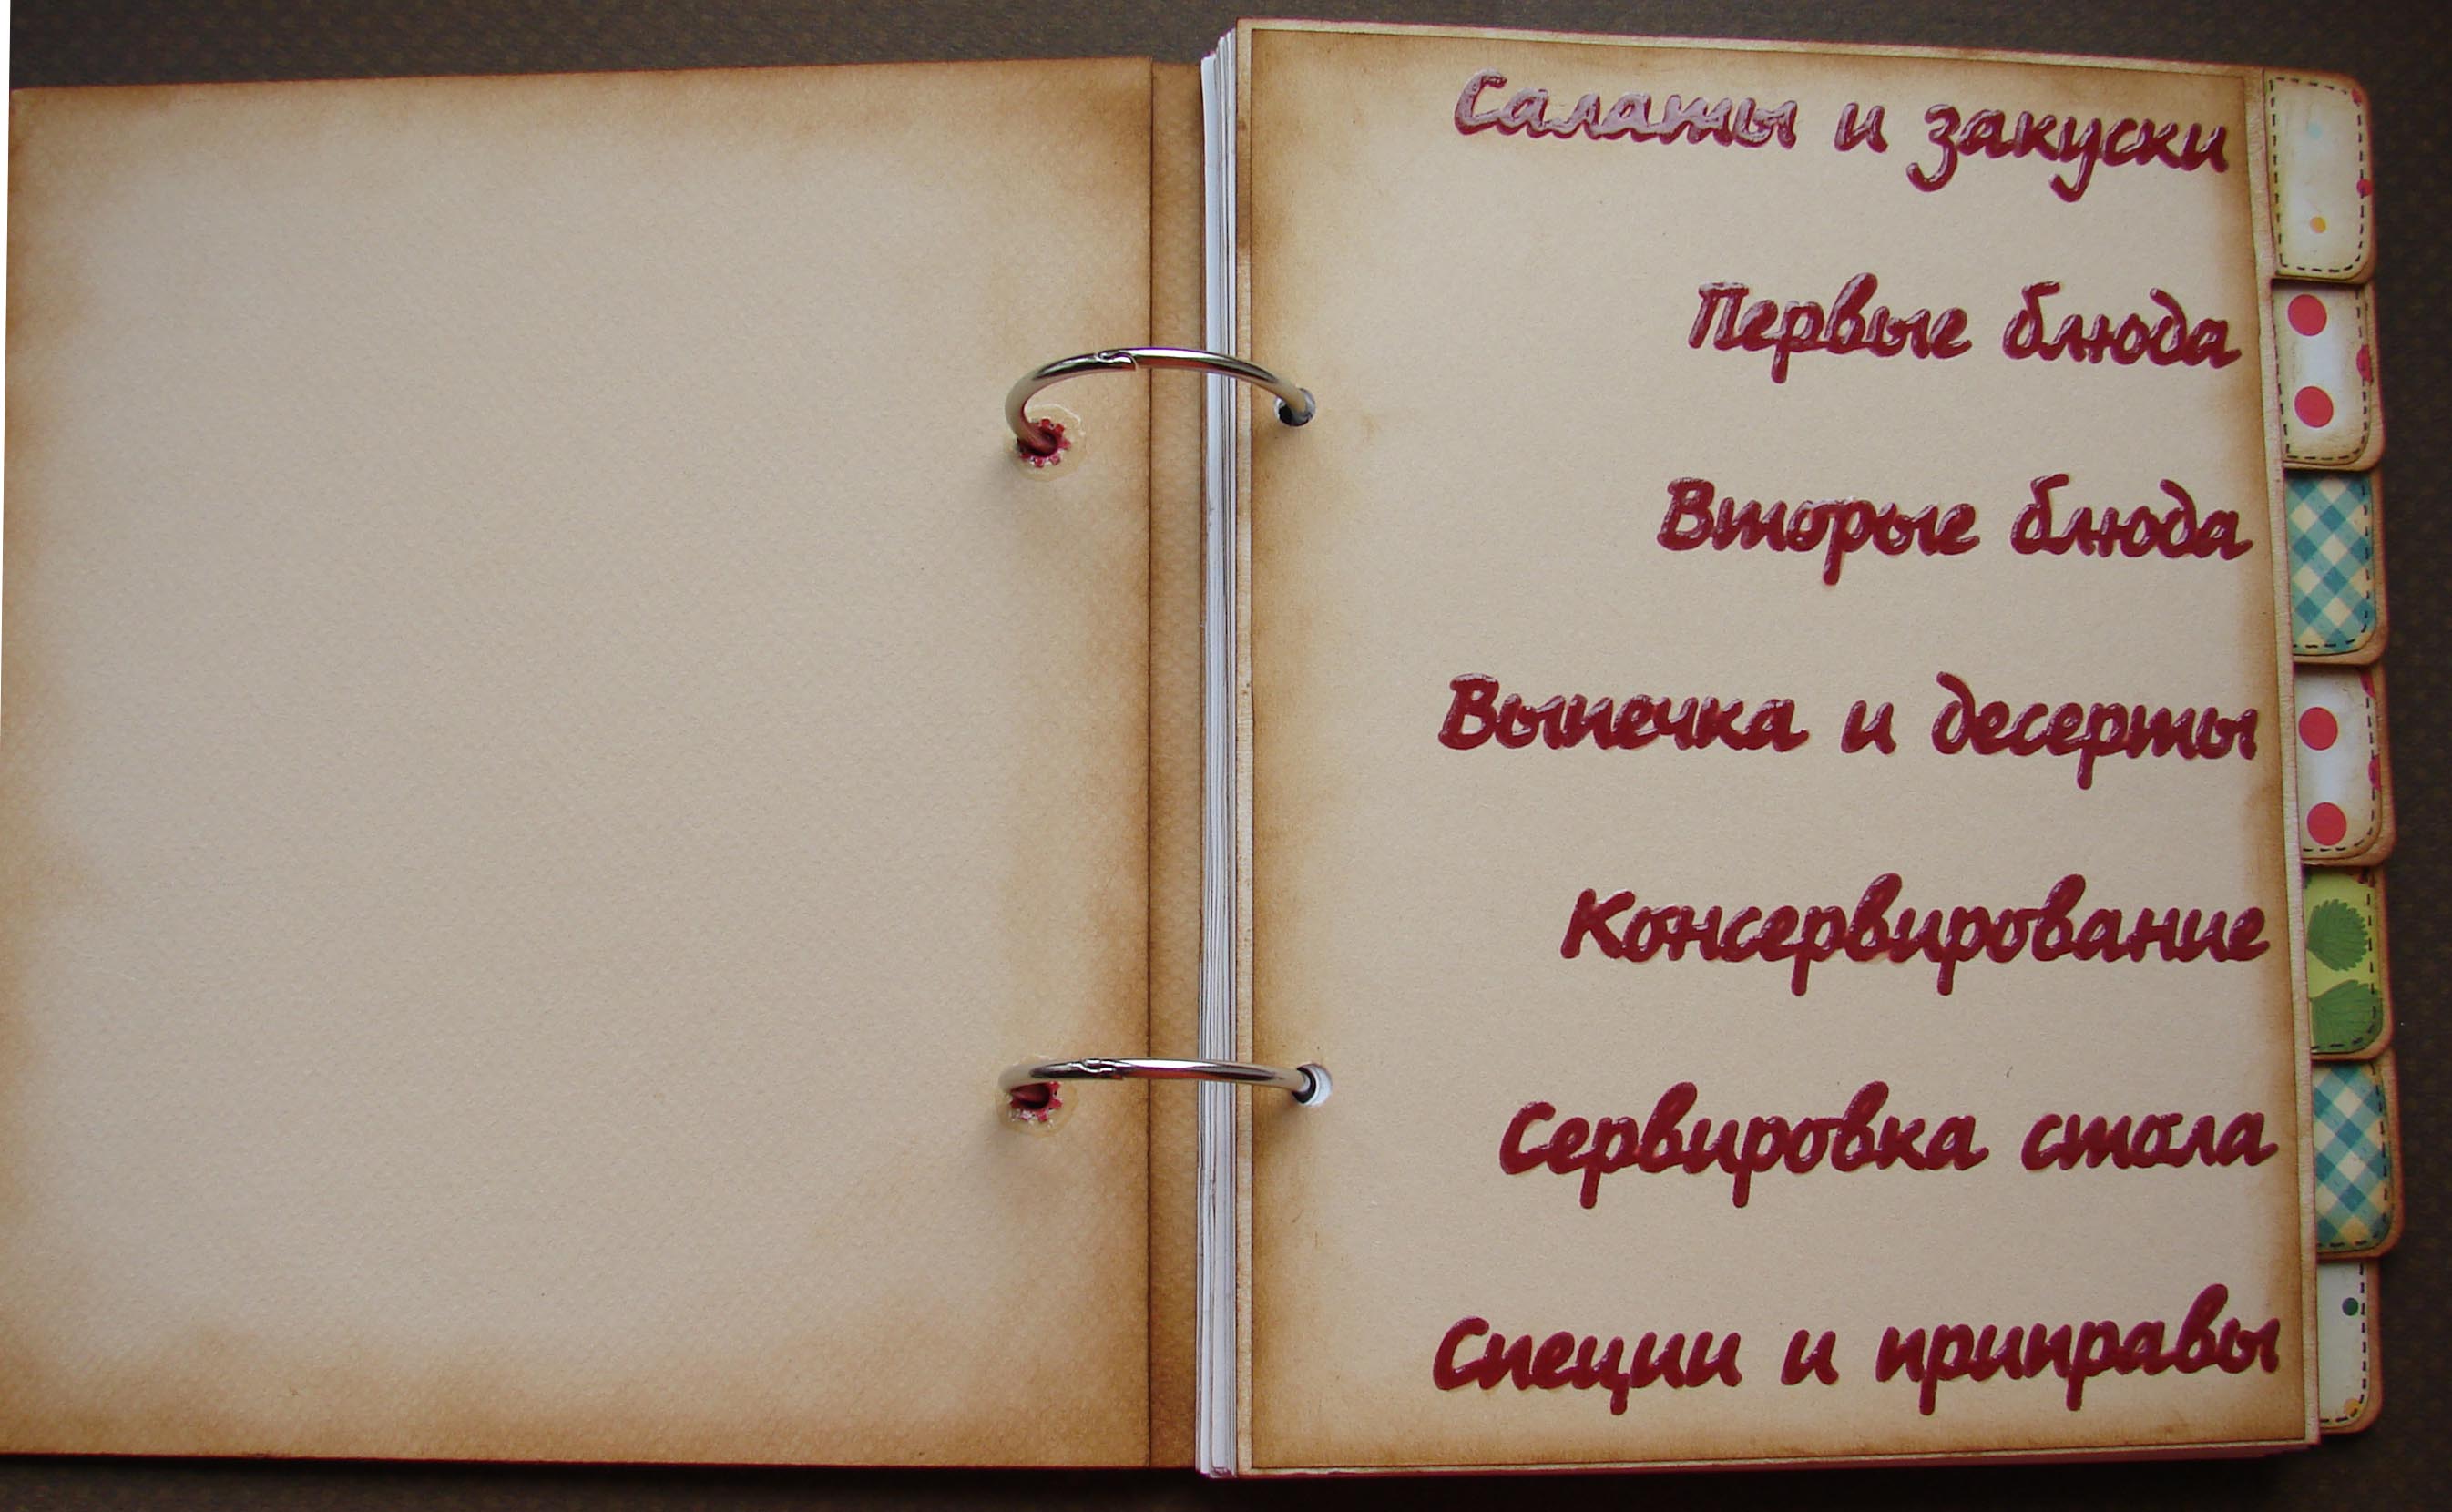 Салаты и закуски
Первые блюда
Вторые блюда
Выпечка и десерты
Консервирование
Сервировка стола
Специи и приправы